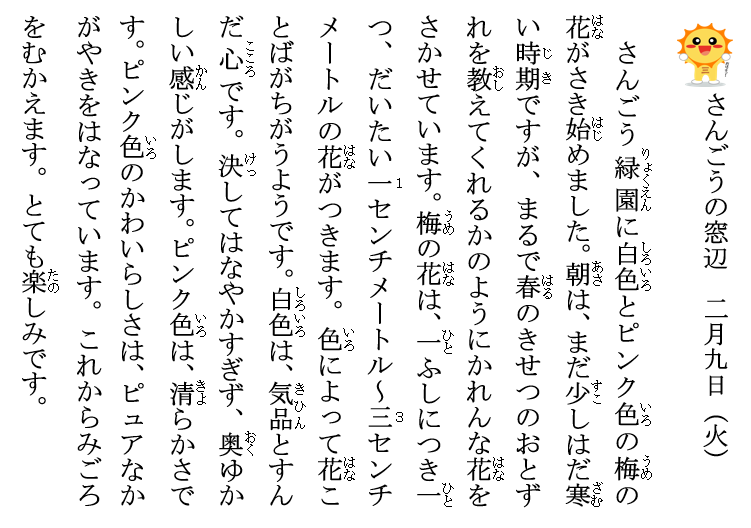 さんごうの窓辺　二月九日（火）
さんごう緑園に白色とピンク色の梅の
花がさき始めました。朝は、まだ少しはだ寒
い時期ですが、まるで春のきせつのおとず
れを教えてくれるかのようにかれんな花を
さかせています。梅の花は、一ふしにつき一
つ、だいたい一センチメートル～三センチ
メートルの花がつきます。色によって花こ
とばがちがうようです。白色は、気品とすん
だ心です。決してはなやかすぎず、奥ゆか
しい感じがします。ピンク色は、清らかさで
す。ピンク色のかわいらしさは、ピュアなか
がやきをはなっています。これからみごろ
をむかえます。とても楽しみです。